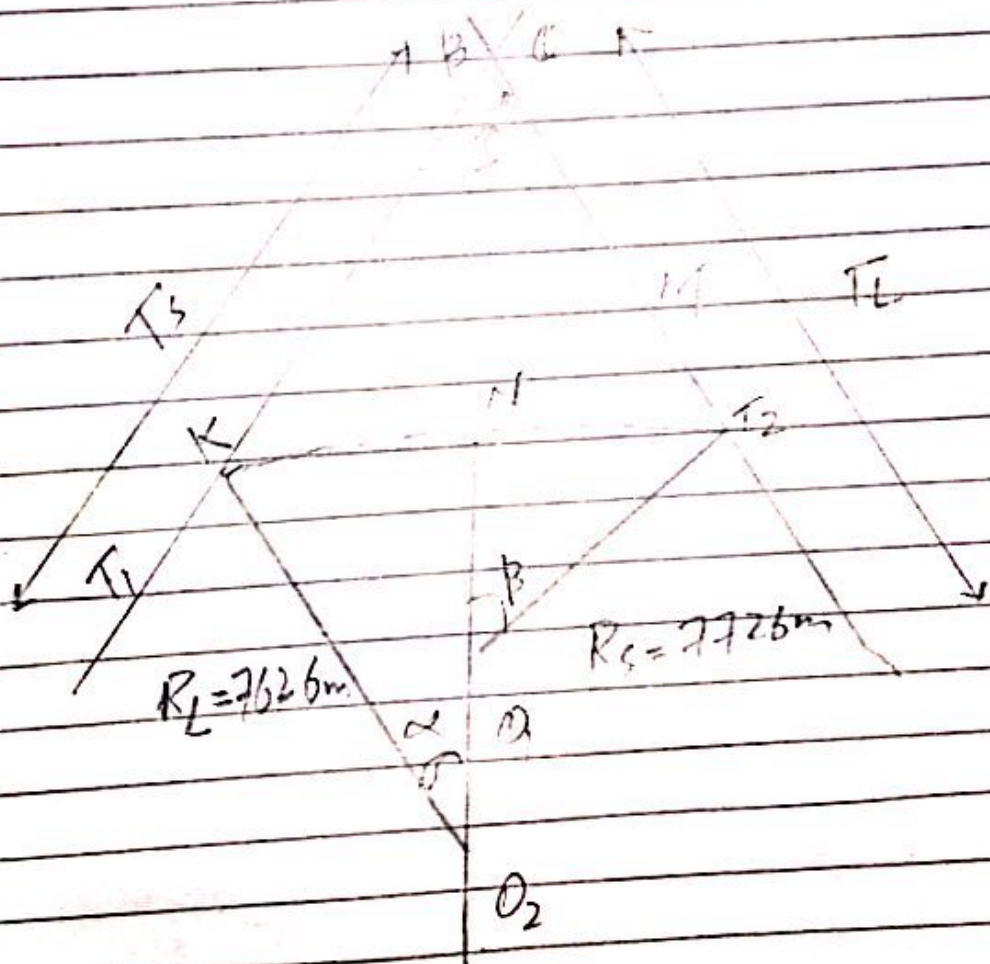 A B C
Ts M TL
N
K T2
T1 β
RL=7626m Rs=7726m
α O1
O2